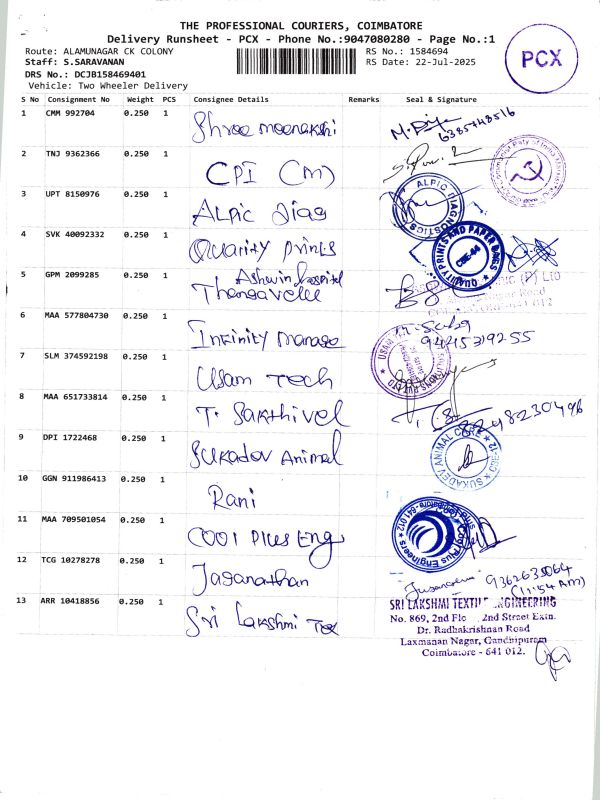 THE PROFESSIONAL COURIERS, COIMBATORE
Delivery Runsheet - PCX - Phone No.:9047080280 - Page No.:1
Route: ALAMUNAGAR CK COLONY
RS No.: 1584694
Staff: S.SARAVANAN
RS Date: 22-Jul-2025
PCX
DRS No.: DCJB158469401
Vehicle: Two Wheeler Delivery
S No Consignment No Weight PCS Consignee Details Remarks Seal & Signature
1 CMM 992704 0.250 1 Shree meenakshi
2 TNJ 9362366 0.250 1 CPI (M)
3 UPT 8150976 0.250 1 Alpic Diag ALPIC DIAGNOSTICS
4 SVK 40092332 0.250 1 Quality prints QUALITY PRINTS AND PAPER BAGS CBE-44
5 GPM 2099285 0.250 1 Ashwin hospital Thangavelu
6 MAA 577804730 0.250 1 Infinity Manage
7 SLM 374592198 0.250 1 Usam Tech
8 MAA 651733814 0.250 1 T. Sakthivel
9 DPI 1722468 0.250 1 Sukadev Animal SUKADEV ANIMAL CARE CBE-12
10 GGN 911986413 0.250 1 Rani
11 MAA 709501054 0.250 1 Cool Plus Eng Cool Plus Engineers
12 TCG 10278278 0.250 1 Jaganathan (11:54 AM)
13 ARR 10418856 0.250 1 Sri Lakshmi Tex
SRI LAKSHMI TEXTILE ENGINEERING
No. 869, 2nd Floor, 2nd Street Extn.
Dr. Radhakrishnan Road
Laxmanan Nagar, Gandhipuram
Coimbatore - 641 012.